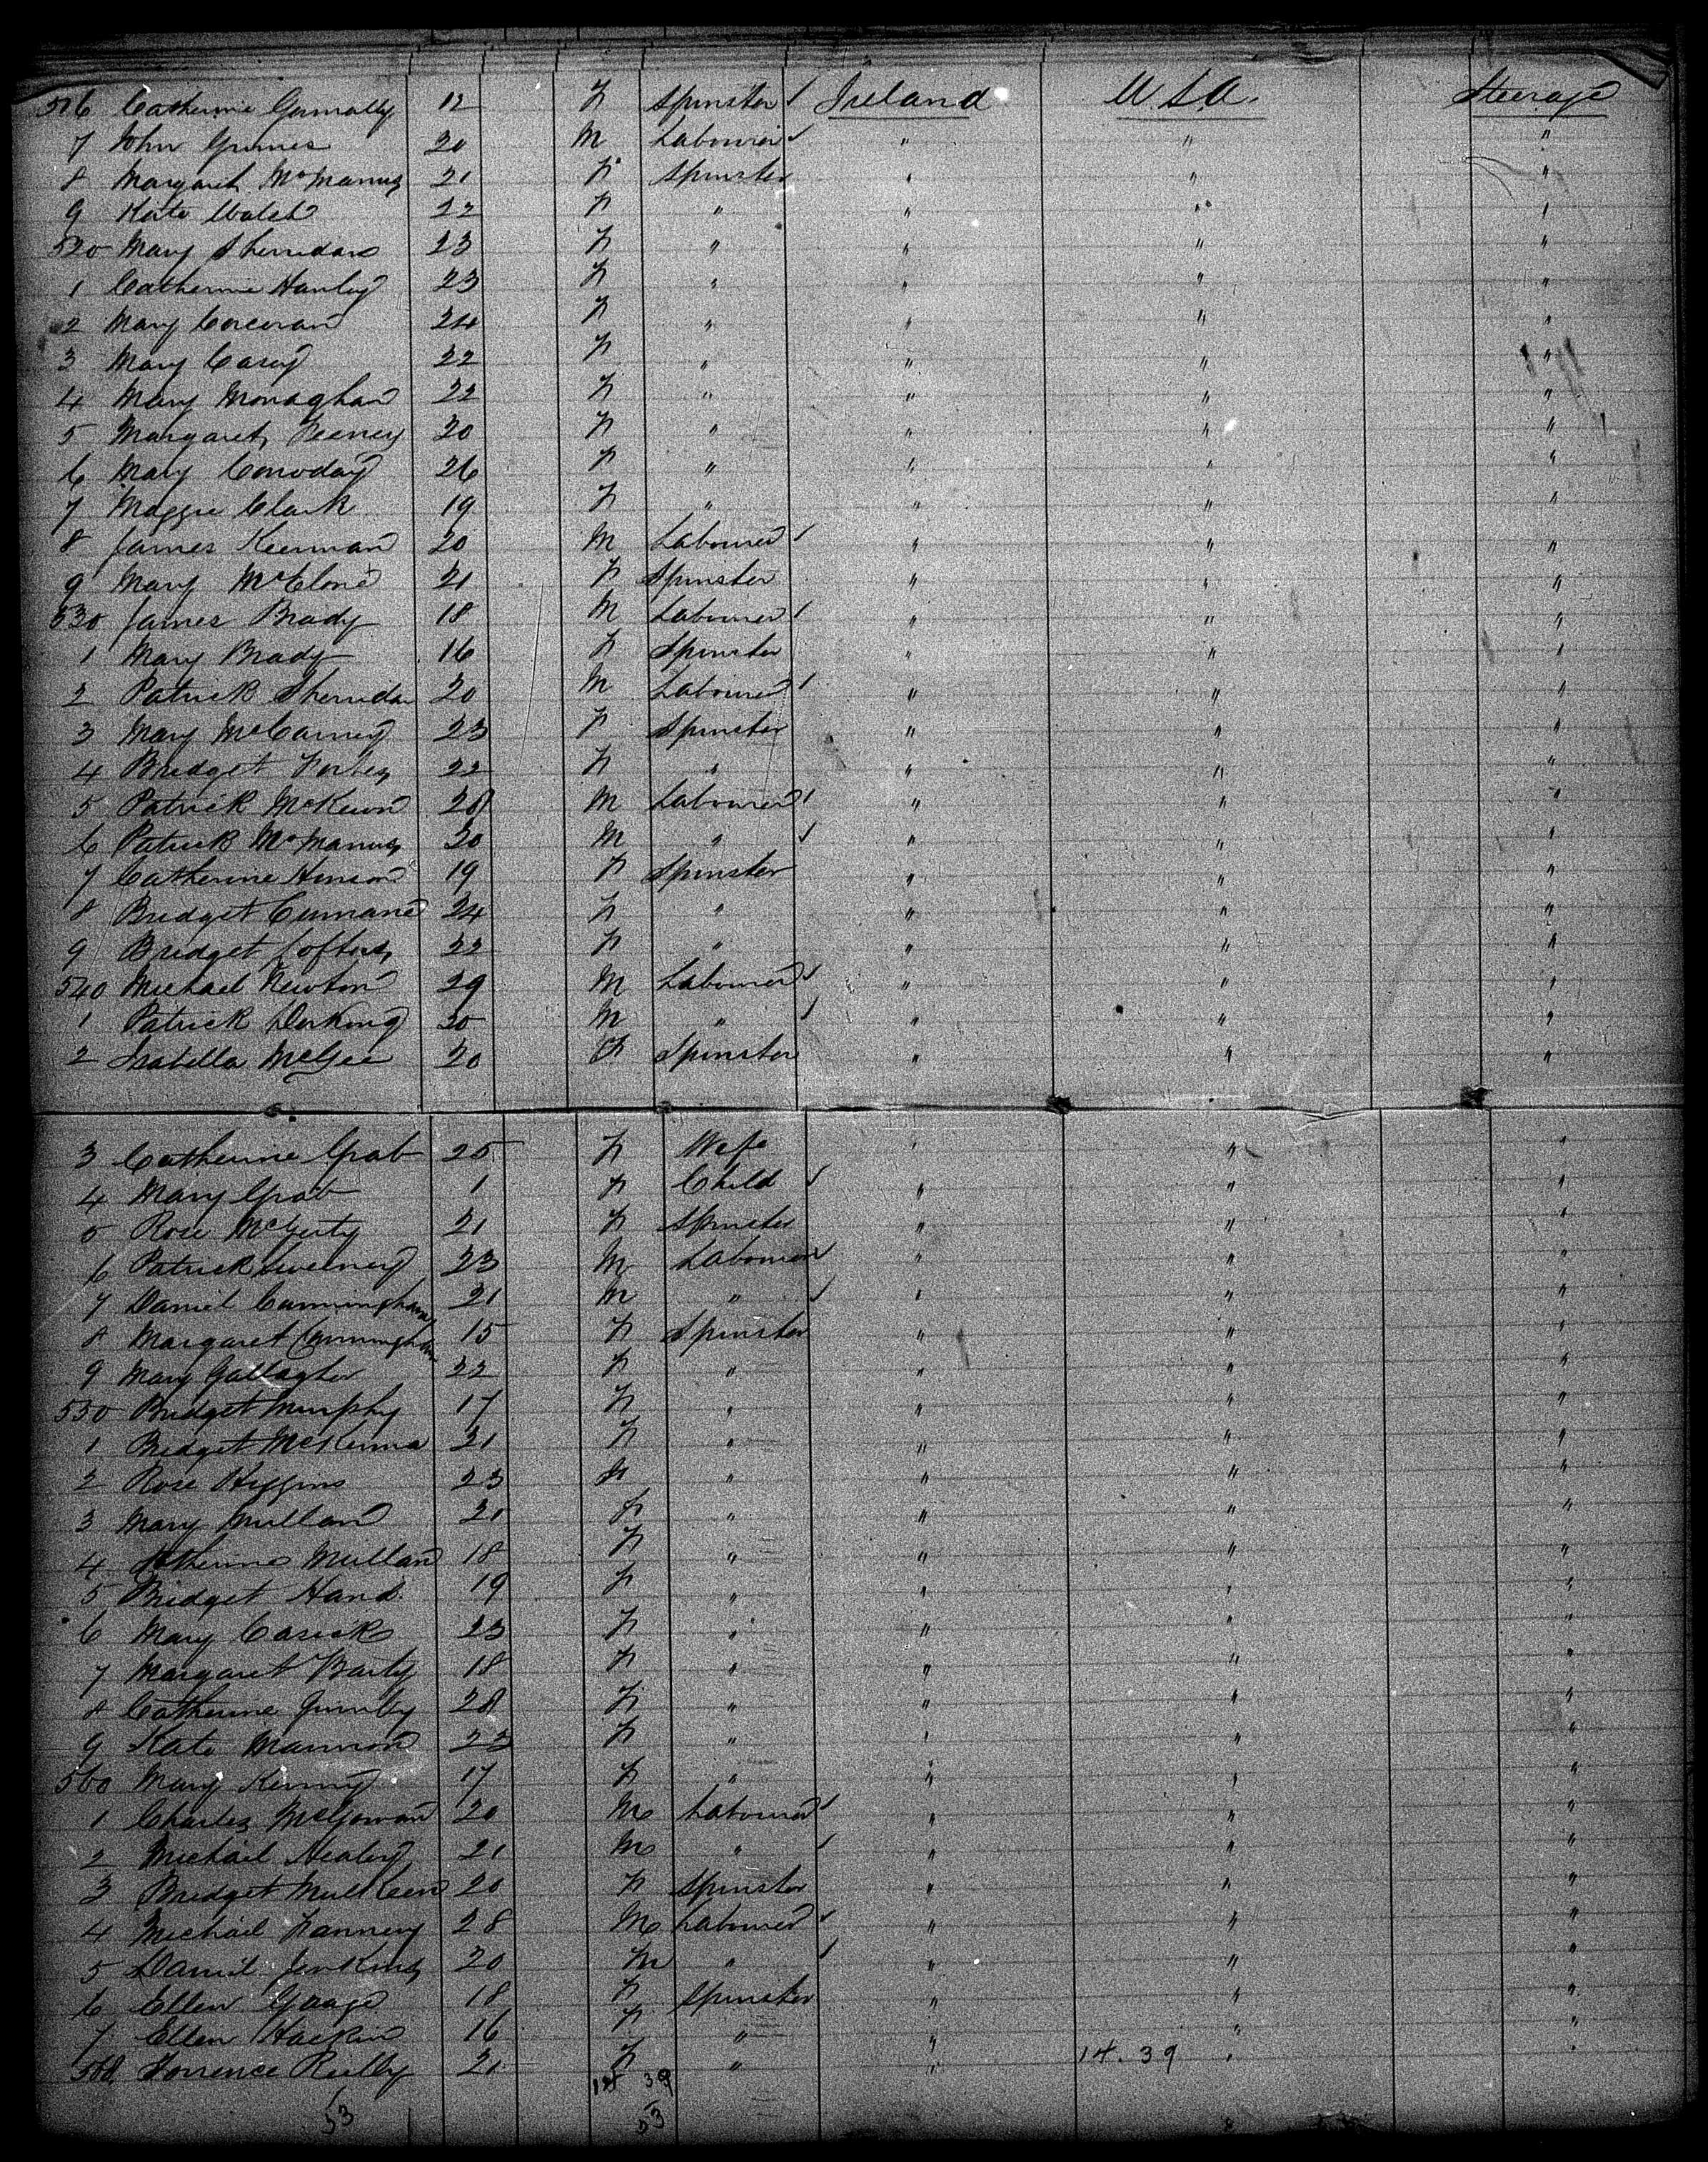 516 Catherine Gormally 12 F Spinster ✓ Ireland U S A. Steerage
7 John Grimes 20 M Labourer ✓ " " "
8 Margaret McManus 21 F Spinster " " "
9 Kate Walsh 22 F " " " "
520 Mary Sherridan 23 F " " " "
1 Catherine Hanley 23 F " " " "
2 Mary Corcoran 24 F " " " "
3 Mary Casey 22 F " " " "
4 Mary Monaghan 22 F " " " "
5 Margaret Feeney 20 F " " " "
6 Mary 26 F " " " "
7 Maggie Clark 19 F " " " "
8 James Keernan 20 M Labourer ✓ " " "
9 Mary McElone 21 F Spinster " " "
530 James Brady 18 M Labourer ✓ " " "
1 Mary Brady 16 F Spinster " " "
2 Patrick Sherridan 20 M Labourer ✓ " " "
3 Mary McCarney 23 F Spinster " " "
4 Bridget Forbes 22 F " " " "
5 Patrick McKeon 20 M Labourer ✓ " " "
6 Patrick McManus 20 M " ✓ " " "
7 Catherine Henson 19 F Spinster " " "
8 Bridget Cumane 24 F " " " "
9 Bridget Loftus 22 F " " " "
540 Michael Newton 29 M Labourer ✓ " " "
1 Patrick Durkin 20 M " ✓ " " "
2 Isabella McGee 20 F Spinster " " "
3 Catherine Grab 25 F Wife " " "
4 Mary Grab 1 F Child ✓ " " "
5 Rose McGerty 21 F Spinster " " "
6 Patrick Sweeney 23 M Labourer ✓ " " "
7 Daniel Cunningham 21 M " ✓ " " "
8 Margaret Cunningham 15 F Spinster " " "
9 Mary Gallagher 22 F " " " "
550 Bridget Murphy 17 F " " " "
1 Bridget McKenna 21 F " " " "
2 Rose Higgins 23 F " " " "
3 Mary Mullan 21 F " " " "
4 Catherine Mullan 18 F " " " "
5 Bridget Hand 19 F " " " "
6 Mary Casick 23 F " " " "
7 Margaret 18 F " " " "
8 Catherine 20 F " " " "
9 Kate Mannion 23 F " " " "
560 Mary Kenny 17 F " " " "
1 Charles McGowan 20 M Labourer ✓ " " "
2 Michael Healey 21 M " ✓ " " "
3 Bridget Mulkeen 20 F Spinster " " "
4 Michael Fannery 28 M Labourer ✓ " " "
5 Daniel Jenkins 20 M " ✓ " " "
6 Ellen 18 F Spinster " " "
7 Ellen Hackin 16 F " " " "
568 Torrence Reilly 21 F " " " "
14. 39
14 39
53 53